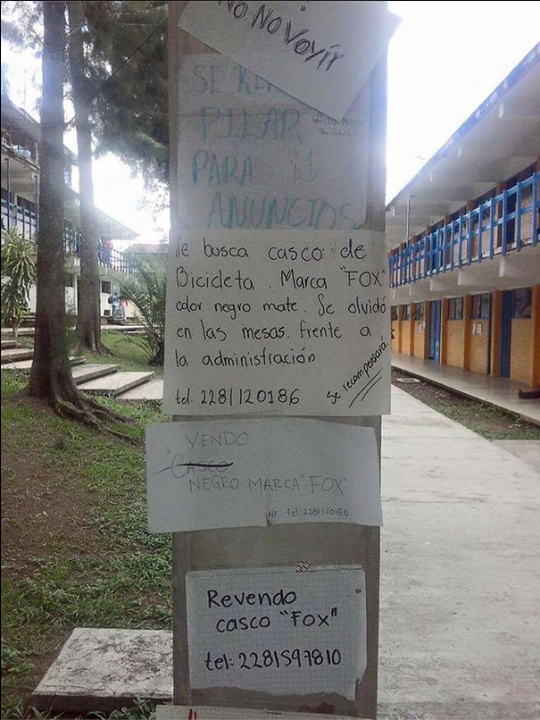 No No Voy ir
SE RE
PILAR
PARA
ANUNCIOS
Se busca casco de
Bicicleta. Marca "FOX"
color negro mate. Se olvidó
en las mesas frente a
la administración
tel: 2281120186
Se recompensará
VENDO
CASCO
NEGRO MARCA "FOX"
tel. 2281120186
Revendo
casco "Fox"
tel: 2281597810